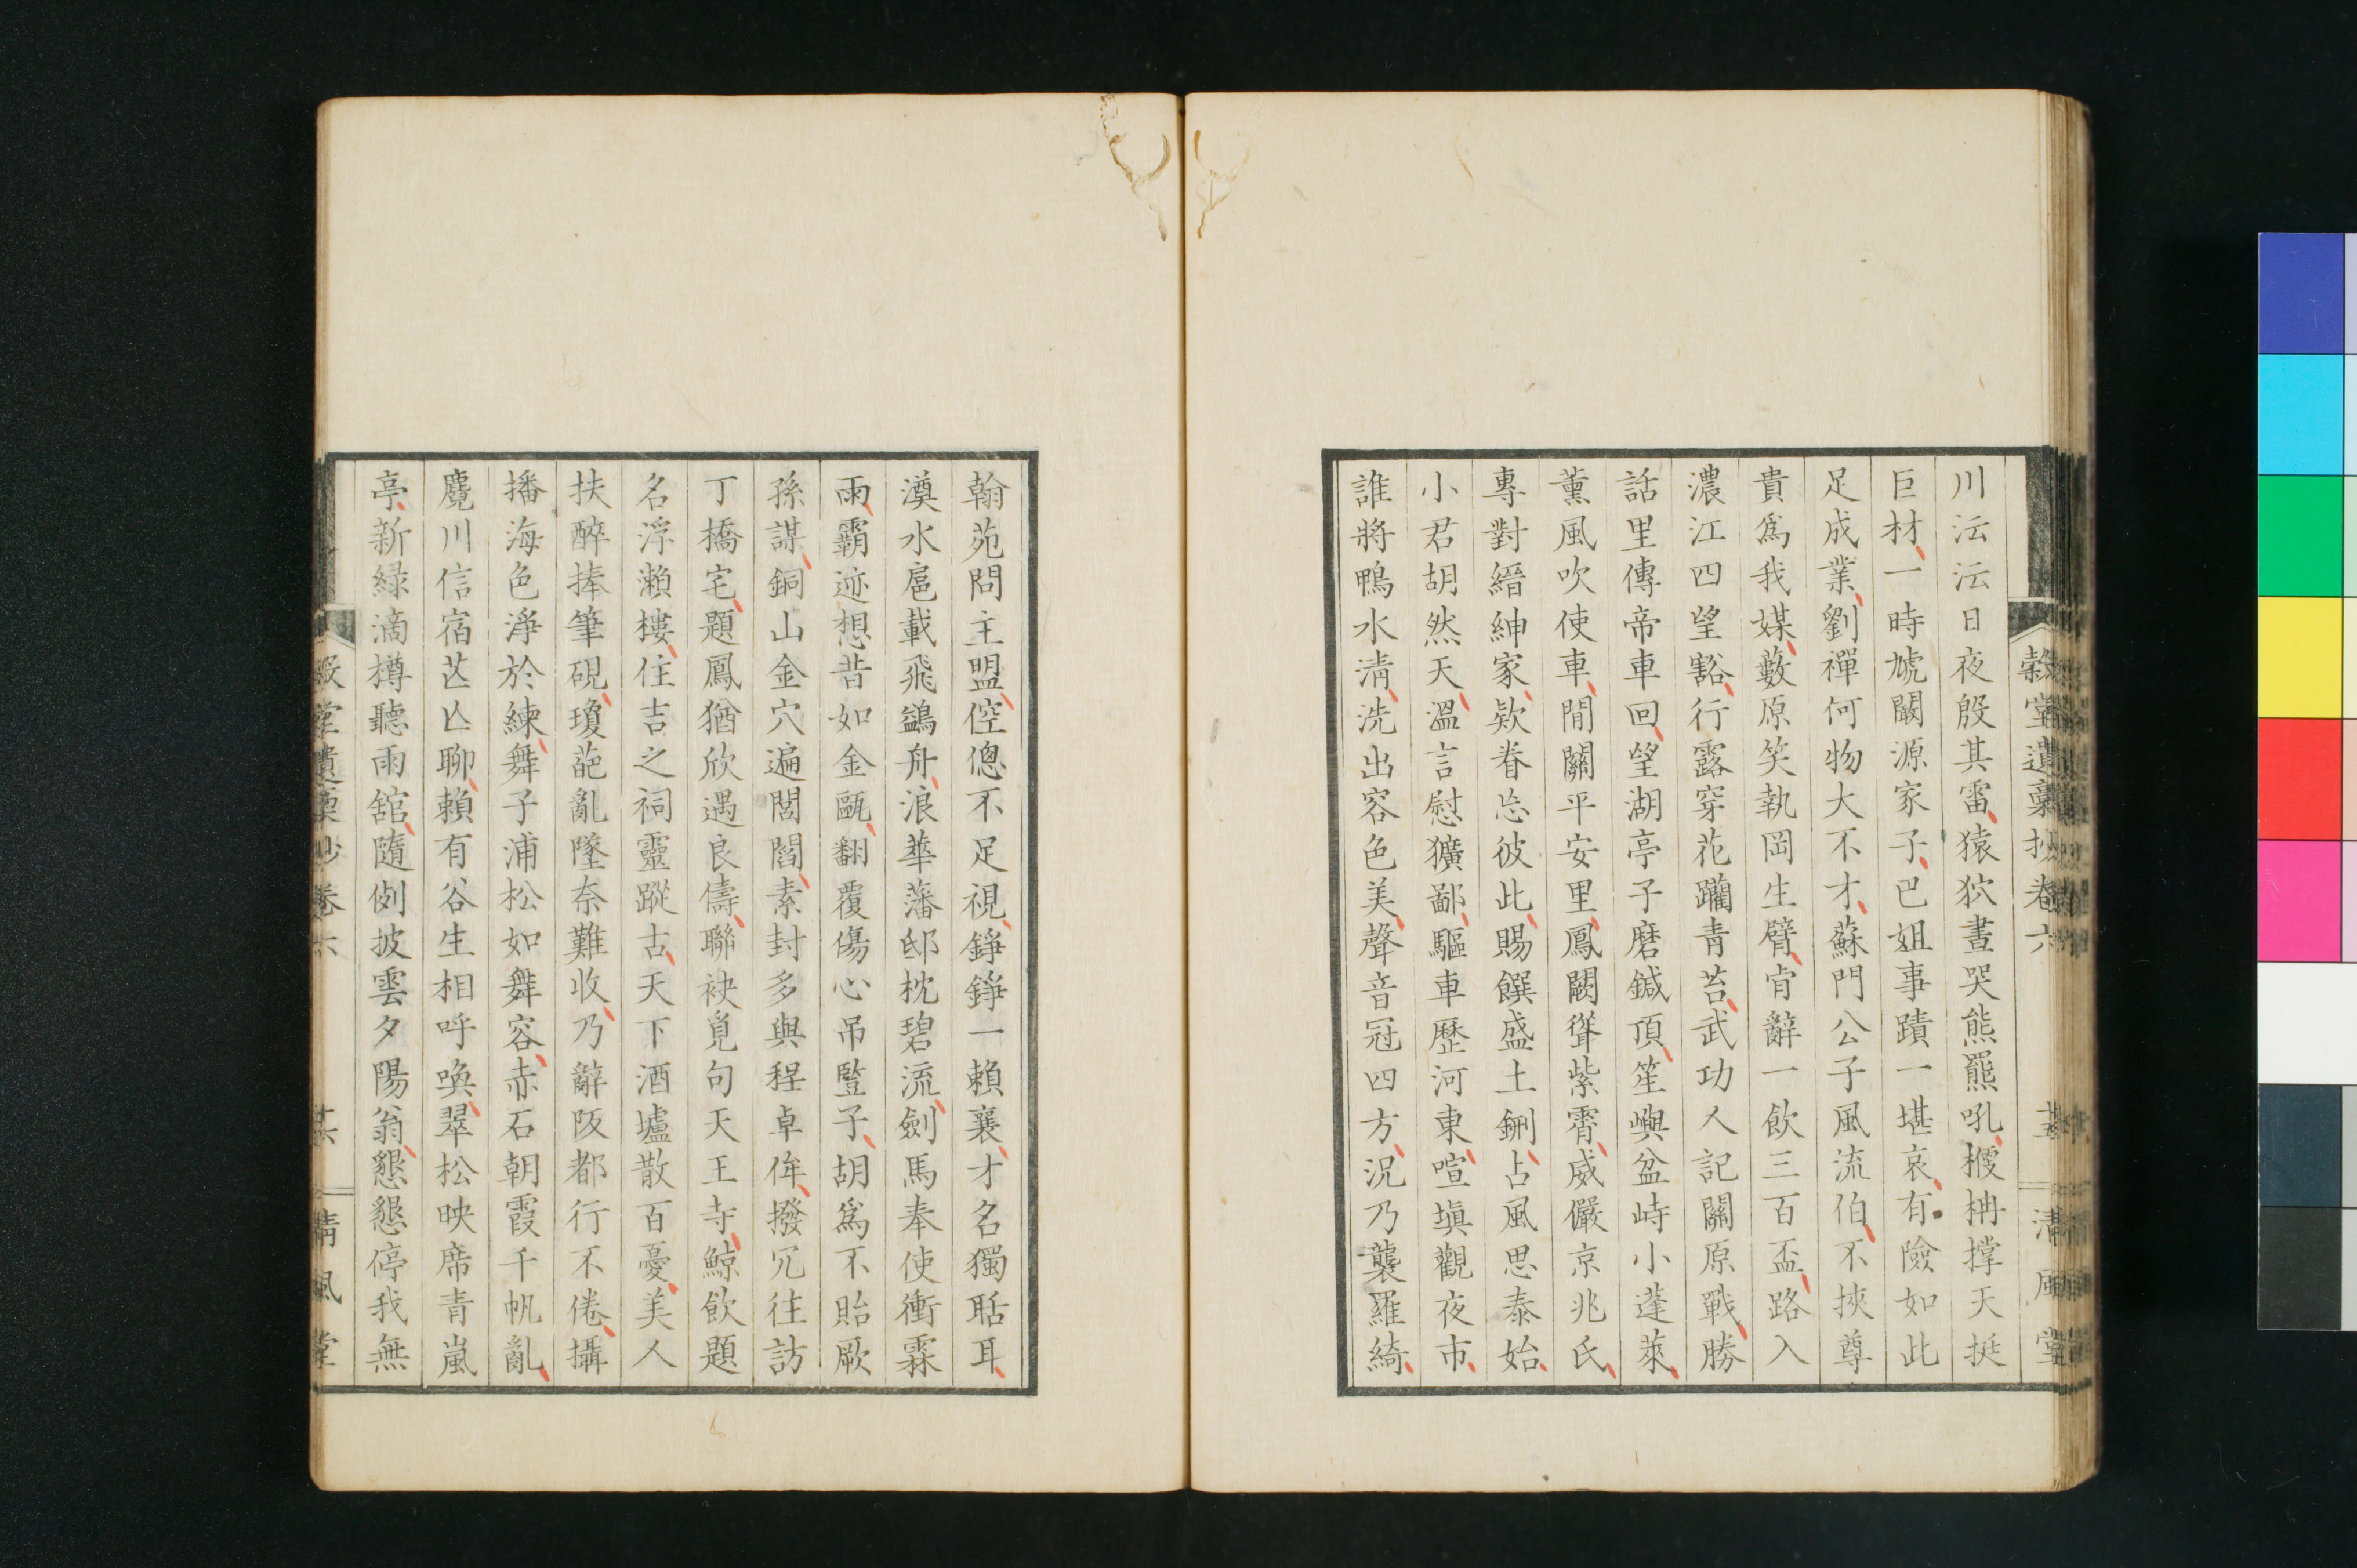 穀堂遺稾抄卷六 𠀋 清風堂
川沄沄日夜殷其雷猿狖晝哭熊羆吼椶枏撐天挺
巨材一時虓闞源家子巴姐事蹟一堪哀有險如此
足成業劉禪何物大不才蘇門公子風流伯不挾尊
貴爲我媒藪原笑執岡生臂肯辭一飲三百盃路入
濃江四望豁行露穿花躪青苔武功人記關原戰勝
話里傳帝車回望湖亭子磨鍼頂笙嶼盆峙小蓬萊
薰風吹使車間關平安里鳳闕聳紫霄威嚴京兆氏
專對縉紳家欵眷忘彼此賜饌盛土鉶占風思泰始
小君胡然天溫言慰獷鄙驅車歷河東喧塡觀夜市
誰將鴨水清洗出容色美聲音冠四方況乃襲羅綺
翰苑問主盟倥傯不足視錚錚一賴襄才名獨聒耳
澳水扈載飛鷁舟浪華藩邸枕碧流劍馬奉使衝霖
雨霸迹想昔如金甌翻覆傷心吊豎子胡爲不貽厥
孫謀銅山金穴遍閭閻素封多與程卓侔撥冗往訪
丁橋宅題鳳猶欣遇良儔聯袂覓句天王寺鯨飲題
名浮瀨樓住吉之祠靈蹤古天下酒壚散百憂美人
扶醉捧筆硯瓊葩亂墜奈難收乃辭阪都行不倦攝
播海色淨於練舞子浦松如舞容赤石朝霞千帆亂
麑川信宿苉亾聊賴有谷生相呼喚翠松映席青嵐
亭新綠滴樽聽雨舘隨例披雲夕陽翁懇懇停我無
穀堂遺稾抄卷六 廿六 清風堂